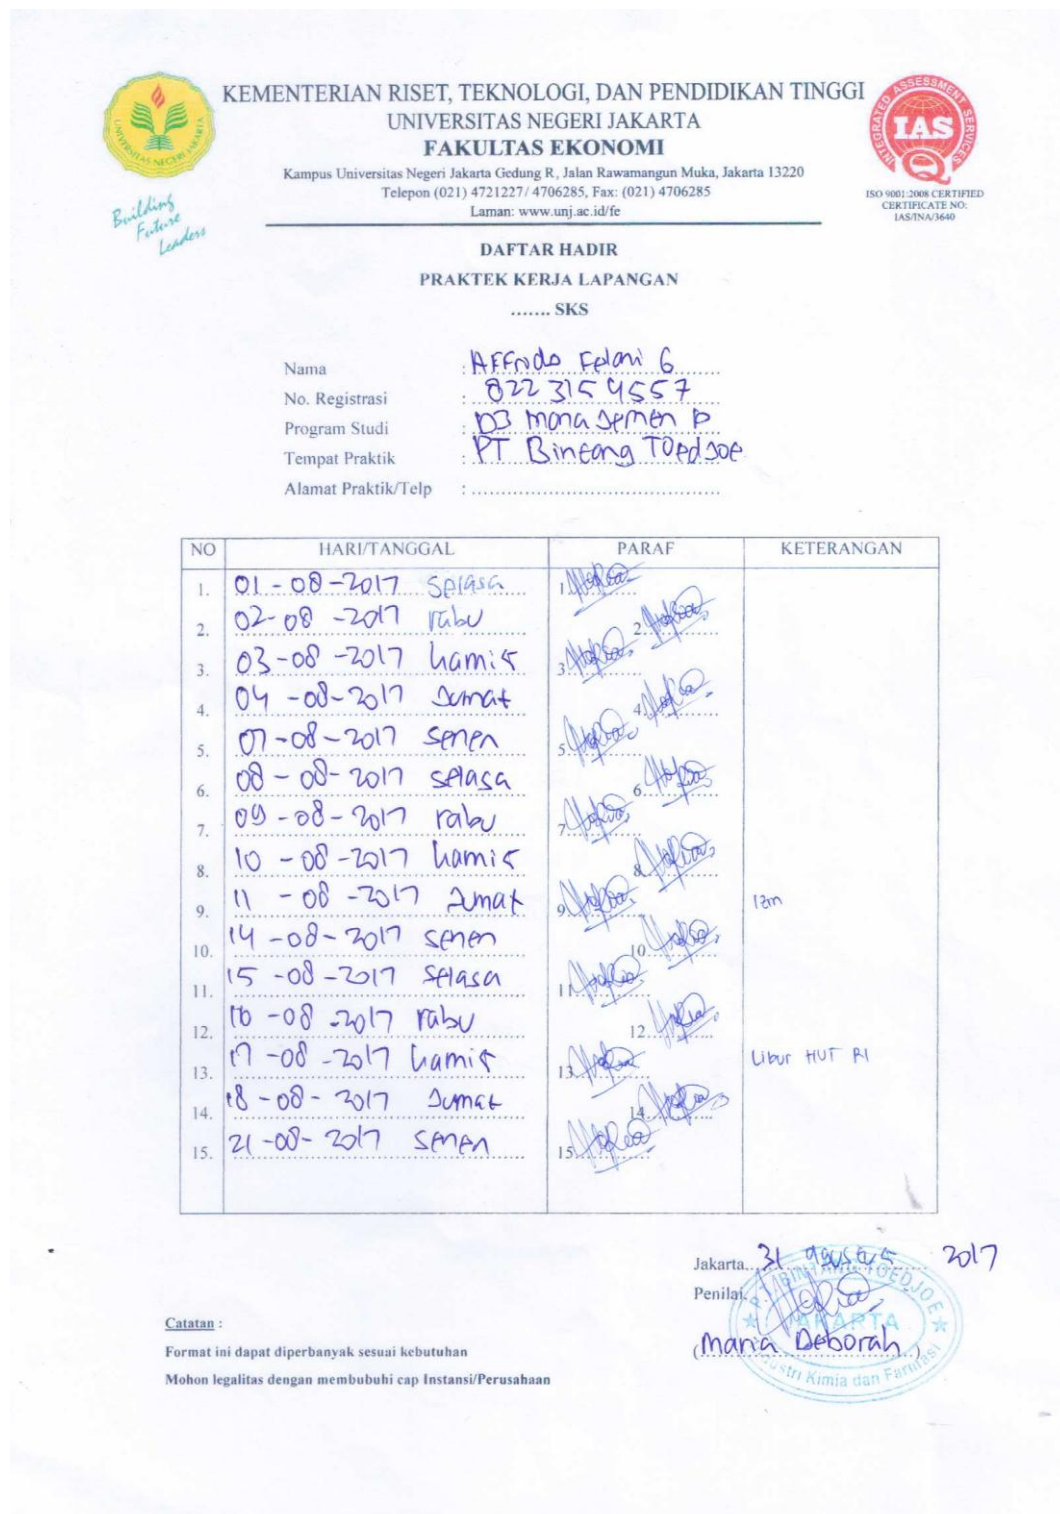 KEMENTERIAN RISET, TEKNOLOGI, DAN PENDIDIKAN TINGGI
UNIVERSITAS NEGERI JAKARTA
FAKULTAS EKONOMI
Kampus Universitas Negeri Jakarta Gedung R, Jalan Rawamangun Muka, Jakarta 13220
Telepon (021) 4721227/ 4706285, Fax: (021) 4706285
Laman: www.unj.ac.id/fe
UNIVERSITAS NEGERI JAKARTA
Building
Future
Leaders
INTEGRATED ASSESSMENT SERVICES
IAS
ISO 9001:2008 CERTIFIED
CERTIFICATE NO:
IAS/INA/3640
DAFTAR HADIR
PRAKTEK KERJA LAPANGAN
....... SKS
Nama : AFFrido Felani G
No. Registrasi : 822 315 4557
Program Studi : D3 manajemen P
Tempat Praktik : PT Bintang TOedJoe
Alamat Praktik/Telp : ........................................
NO HARI/TANGGAL PARAF KETERANGAN
1. 01-08-2017 Selasa 1.
2. 02-08-2017 rabu 2.
3. 03-08-2017 kamis 3.
4. 04-08-2017 Jumat 4.
5. 07-08-2017 senen 5.
6. 08-08-2017 selasa 6.
7. 09-08-2017 rabu 7.
8. 10-08-2017 kamis 8.
9. 11-08-2017 Jumat 9. Izin
10. 14-08-2017 senen 10.
11. 15-08-2017 selasa 11.
12. 16-08-2017 rabu 12.
13. 17-08-2017 kamis 13. Libur HUT RI
14. 18-08-2017 Jumat 14.
15. 21-08-2017 senen 15.
Jakarta, 31 agustus 2017
Penilai,
P.T. BINTANG TOEDJOE
JAKARTA
Industri Kimia dan Farmasi
(Maria Deborah)
Catatan :
Format ini dapat diperbanyak sesuai kebutuhan
Mohon legalitas dengan membubuhi cap Instansi/Perusahaan